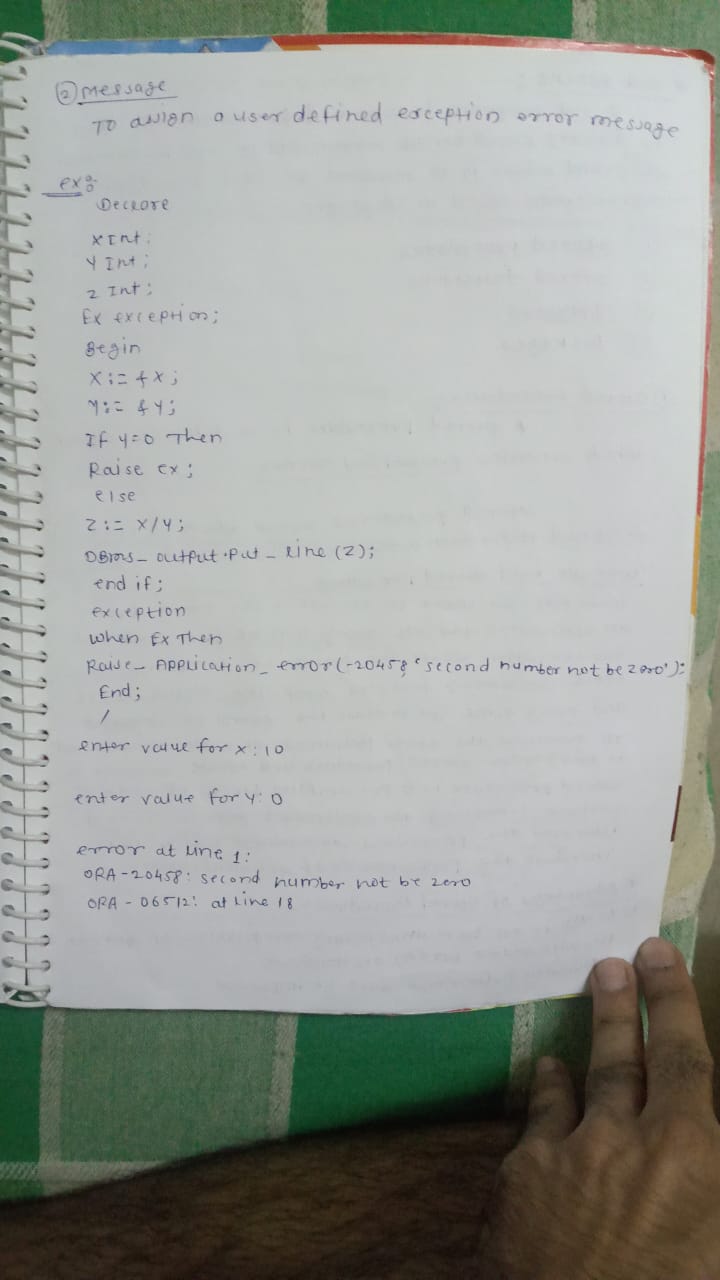 ② message
To assign a user defined exception error message
ex:
Declare
X Int;
Y Int;
Z Int;
Ex exception;
Begin
X:= &X;
Y:= &Y;
If Y=0 Then
Raise ex;
else
Z:= X/Y;
DBms_output.Put_line(Z);
end if;
exception
when Ex Then
Raise_Application_error(-20458,'second number not be zero');
End;
/
enter value for x:10
enter value for Y:0
error at line 1:
ORA-20458: second number not be zero
ORA-06512: at line 18